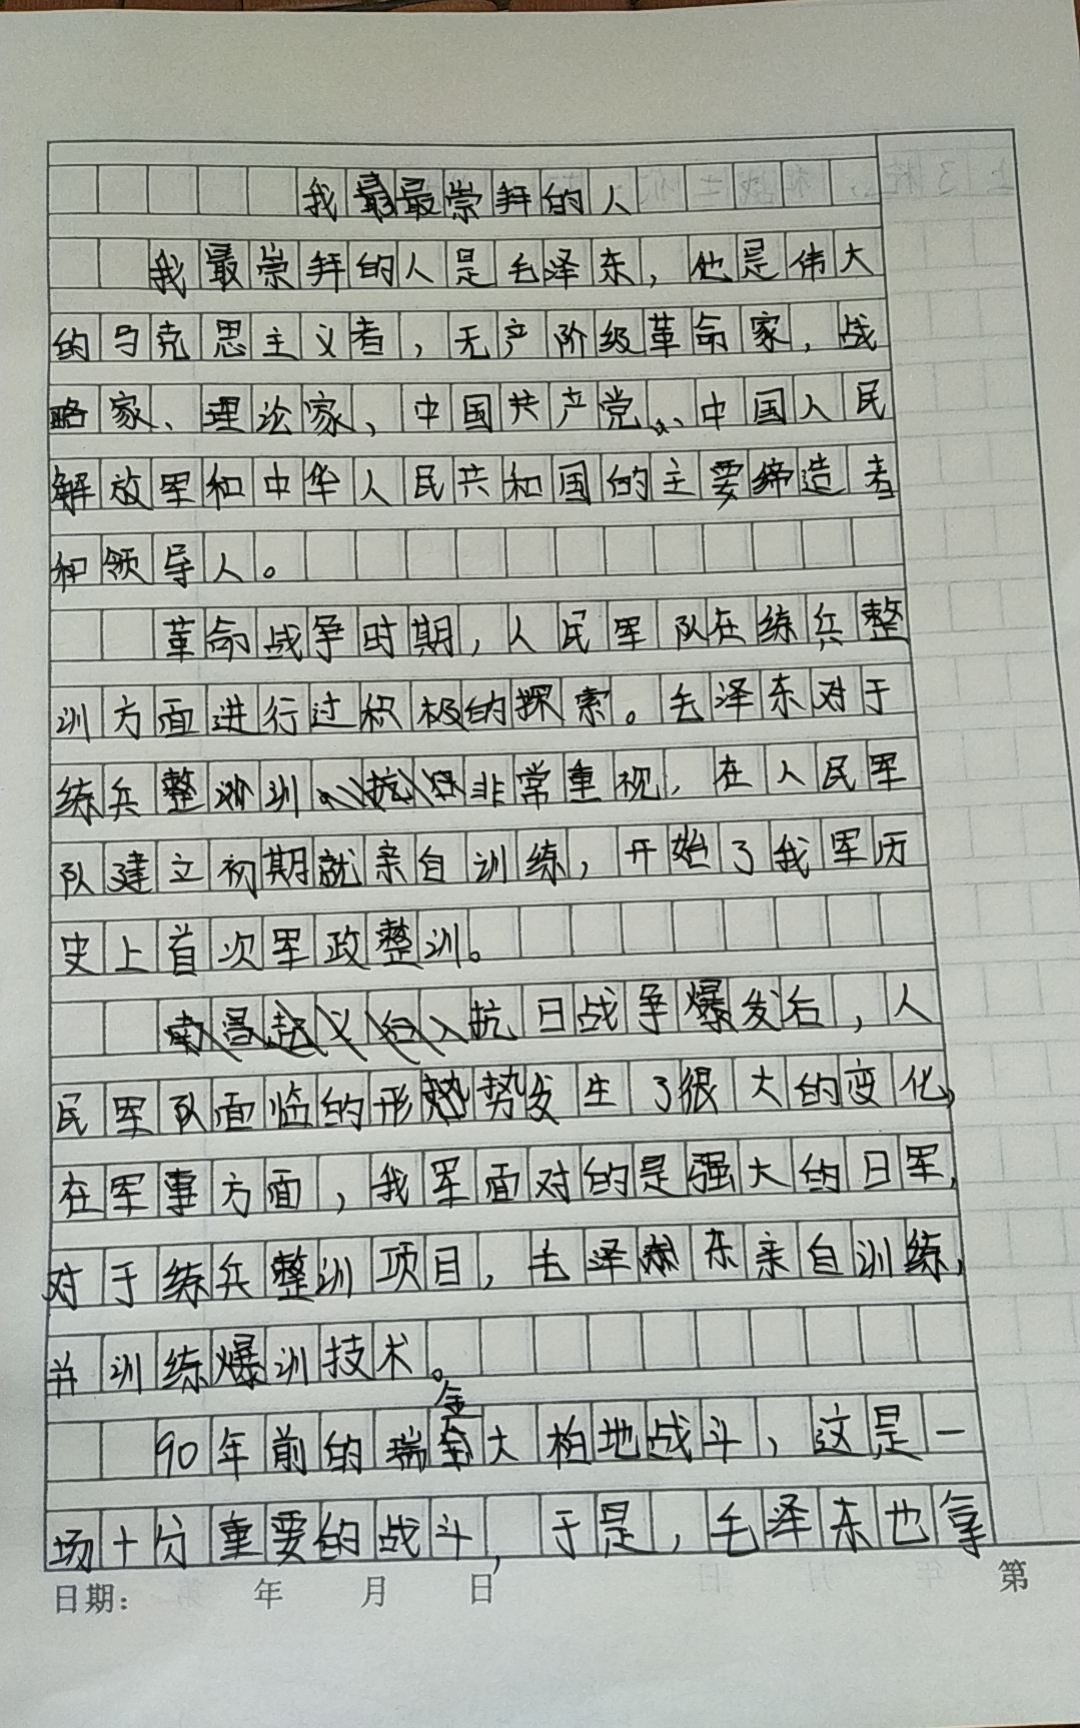 我最最崇拜的人
我最崇拜的人是毛泽东，他是伟大
的马克思主义者，无产阶级革命家，战
略家、理论家，中国共产党、中国人民
解放军和中华人民共和国的主要缔造者
和领导人。
革命战争时期，人民军队在练兵整
训方面进行过积极的探索。毛泽东对于
练兵整训非常重视，在人民军
队建立初期就亲自训练，开始了我军历
史上首次军政整训。
南昌起义后，抗日战争爆发后，人
民军队面临的形势发生了很大的变化，
在军事方面，我军面对的是强大的日军，
对于练兵整训项目，毛泽东亲自训练，
并训练爆训技术。
90年前的瑞金大柏地战斗，这是一
场十分重要的战斗，于是，毛泽东也拿
日期： 年 月 日 第